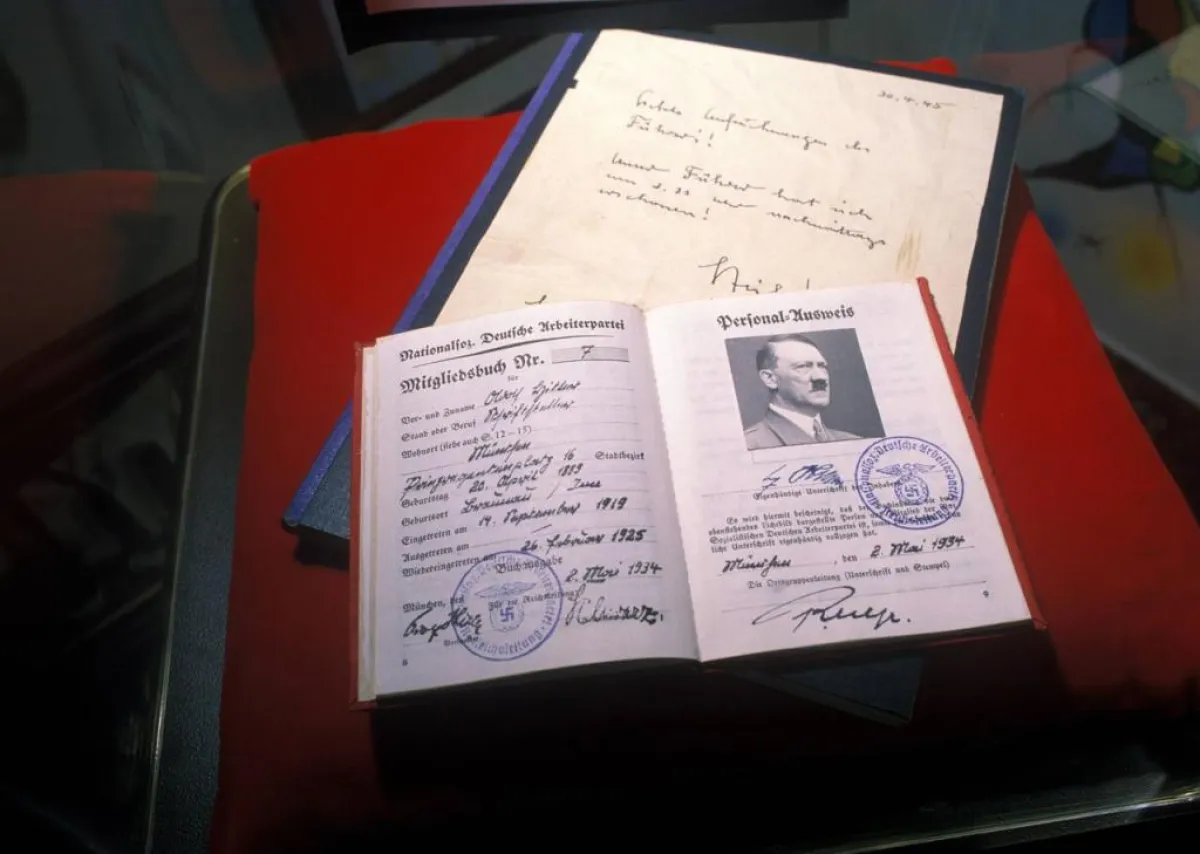 30.4.45
Letzte Aufzeichnungen des
Führers!
Unser Führer hat sich
um nachmittags
erschossen!
Nationalsoz. Deutsche Arbeiterpartei
Mitgliedsbuch Nr. 7
für
Vor- und Zuname Adolf Hitler
Stand oder Beruf Schriftsteller
Wohnort (siehe auch S. 12-15)
München
Prinzregentenplatz 16 Stadtbezirk
Geburtstag 20. April 1889
Geburtsort Braunau / Inn
Eingetreten am 19. September 1919
Ausgetreten am
Wiedereingetreten am 26. Februar 1925
Buchausgabe
München, den 2. Mai 1934
Für die Reichsleitung:
6
Personal-Ausweis
Eigenhändige Unterschrift des Inhabers
Es wird hiermit bescheinigt, daß
obenstehenden Lichtbild dargestellte Person
Sozialistischen Deutschen Arbeiterpartei ist,
liche Unterschrift eigenhändig vollzogen hat.
München, den 2. Mai 1934
Die Ortsgruppenleitung (Unterschrift und Stempel)
9